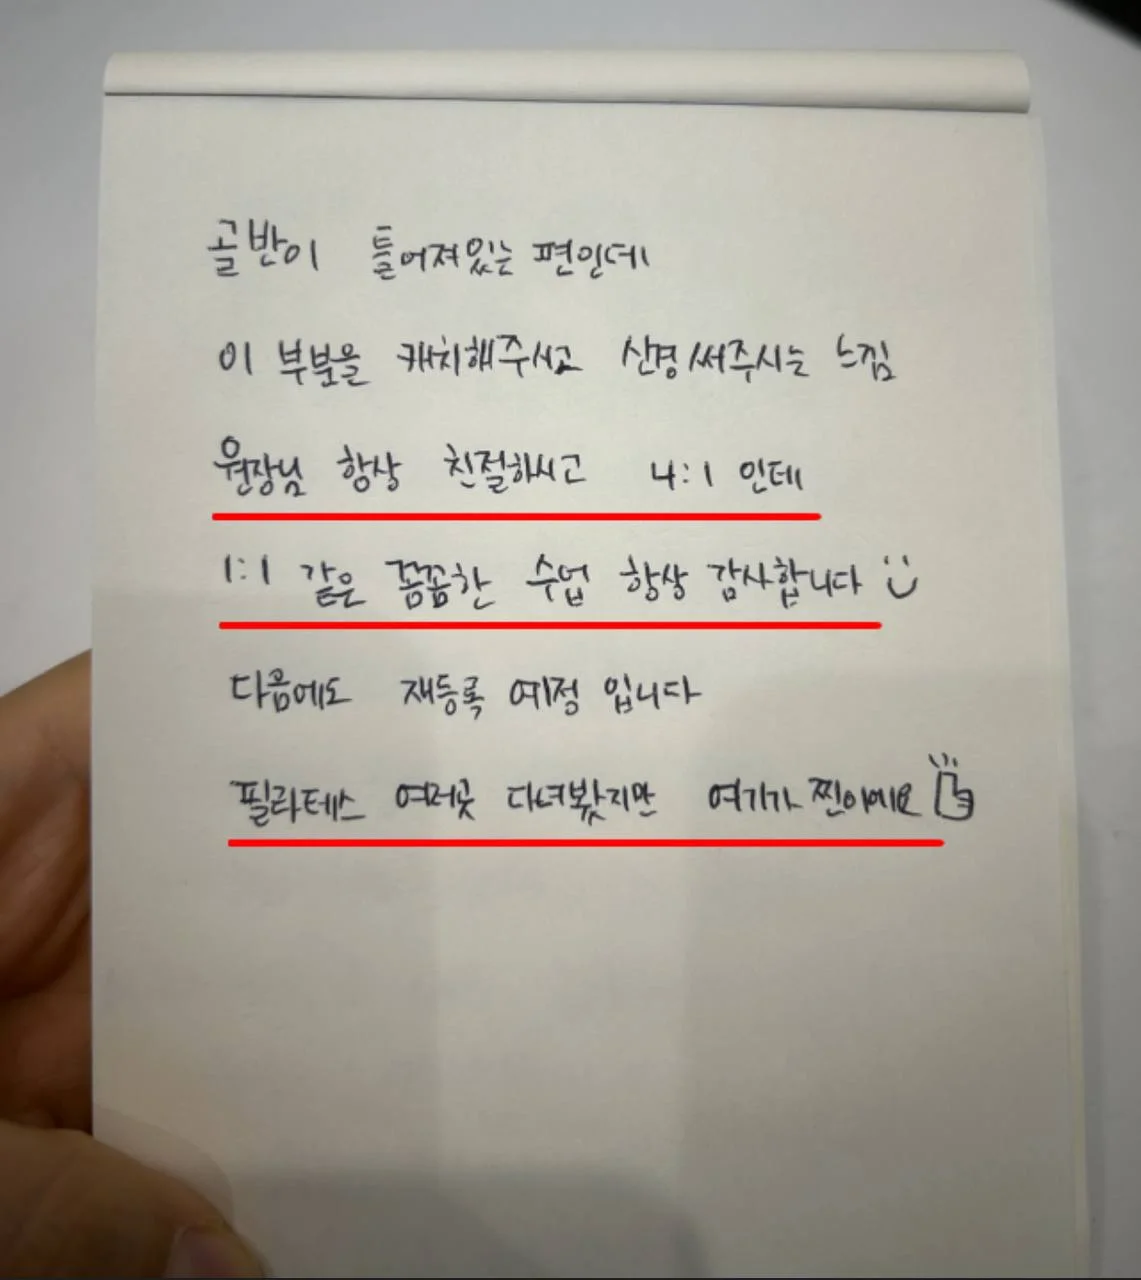 골반이 틀어져있는 편인데
이 부분을 캐치해주시고 신경써주시는 느낌
원장님 항상 친절하시고 4:1 인데
1:1 같은 꼼꼼한 수업 항상 감사합니다
다음에도 재등록 예정 입니다
필라테스 여러곳 다녀봤지만 여기가 찐이에요